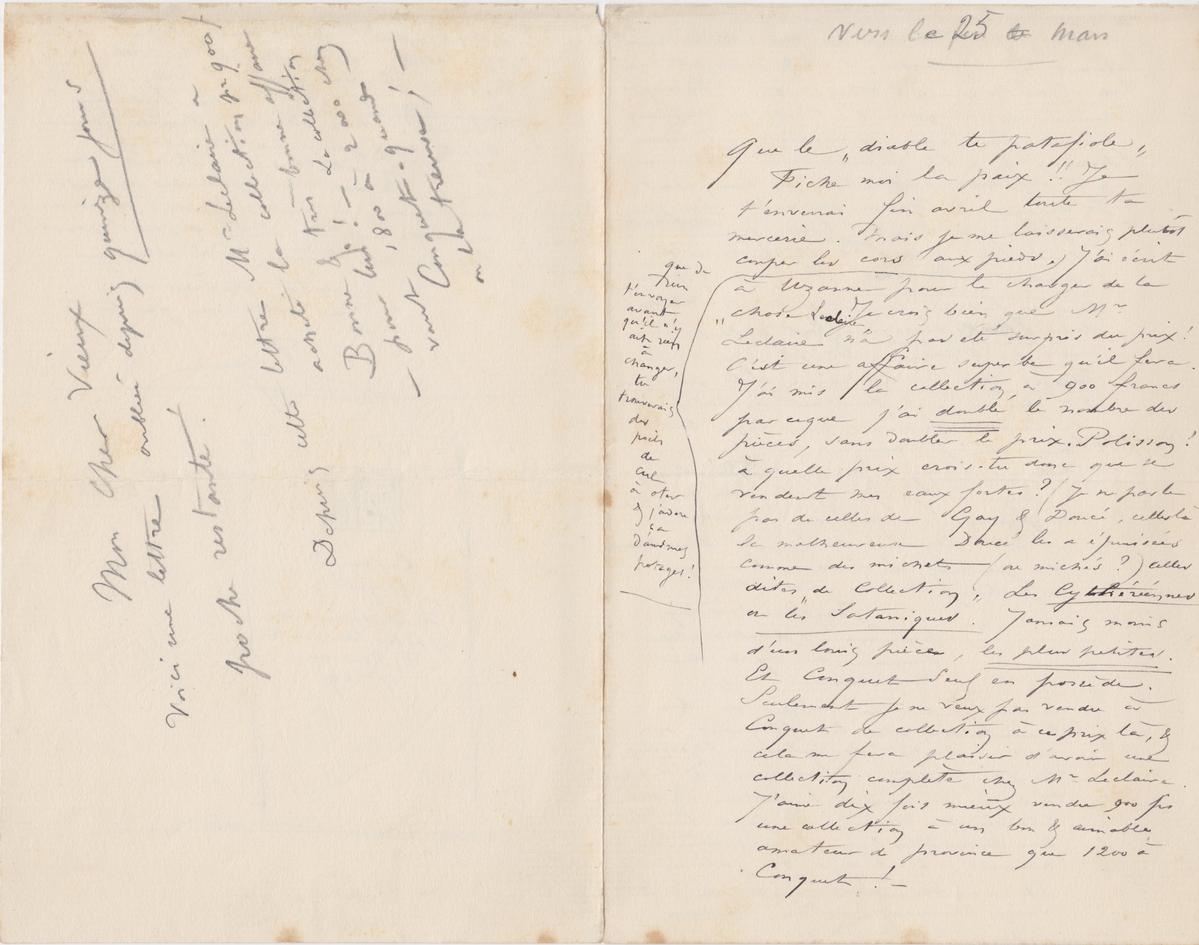 Mon Cher Vieux
Voici une lettre oubliée depuis quinze jours
poche restante!
Depuis cette lettre Mr Leclaire a
acheté la collection pr 900f
Bonne & très bonne affaire
pour lui! – La collection
vaut 1800 à 2000 chez
Conquet – quand
on la trouve! –
Vers le 25 Mars
Que le „diable te patafiole„
Fiche moi la paix!! Je
t'enverrai fin avril toute ta
mercerie. Mais je me laisserais plutôt
couper les cors aux pieds,
que de
rien
t'envoyer
avant
qu'il n'y
ait rien
à
changer,
tu
trouverais
des
poils
de
cul
à ôter
& j'adore
ça
dans mes
potages!
J'ai écrit
à Uzanne pour le charger de la
„chose Leclaire Je crois bien que Mr
Leclaire n'a pas été surpris du prix!
C'est une affaire superbe qu'il fera.
J'ai mis la collection à 900 francs
parceque j'ai doublé le nombre des
pièces, sans doubler le prix. Polisson!
à quelle prix crois-tu donc que se
vendent mes eaux fortes? (Je ne parle
pas de celles de Gay & Doucé, celles là
le malheureux Doucé les a épuisées
comme des michets (ou michés?) celles
dites „de Collection„ Les Cythéréennes
ou les Sataniques. Jamais moins
d'un louis pièce, les plus petites.
Et Conquet seul en possède.
Seulement je ne veux pas vendre à
Conquet de collection à ce prix là, &
cela me fera plaisir d'avoir une
collection complète chez Mr Leclaire.
J'aime dix fois mieux vendre 900 frs
une collection à un bon & aimable
amateur de province que 1200 à
Conquet! –